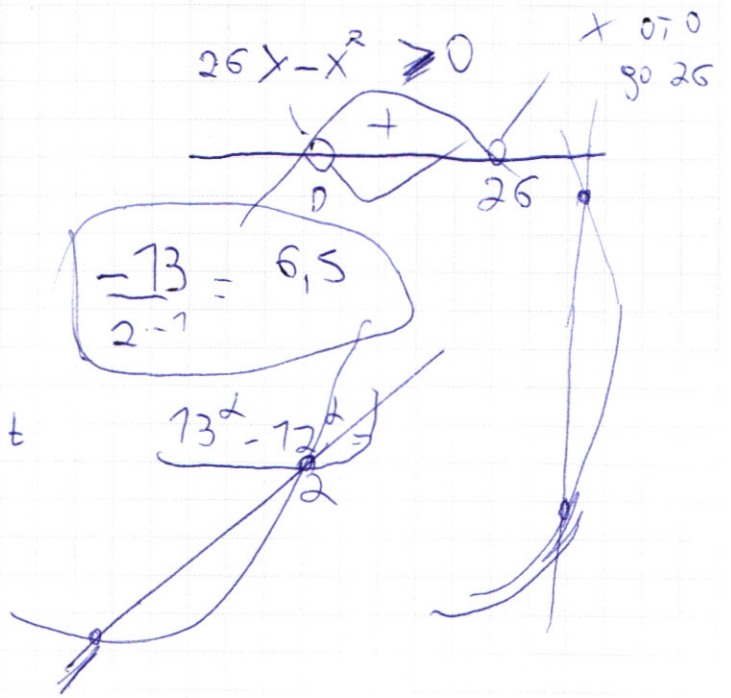 26x - x² ≥ 0
x от 0
до 26
+
0 26
-13 / 2·-1 = 6,5
t
13² - 12² =
2